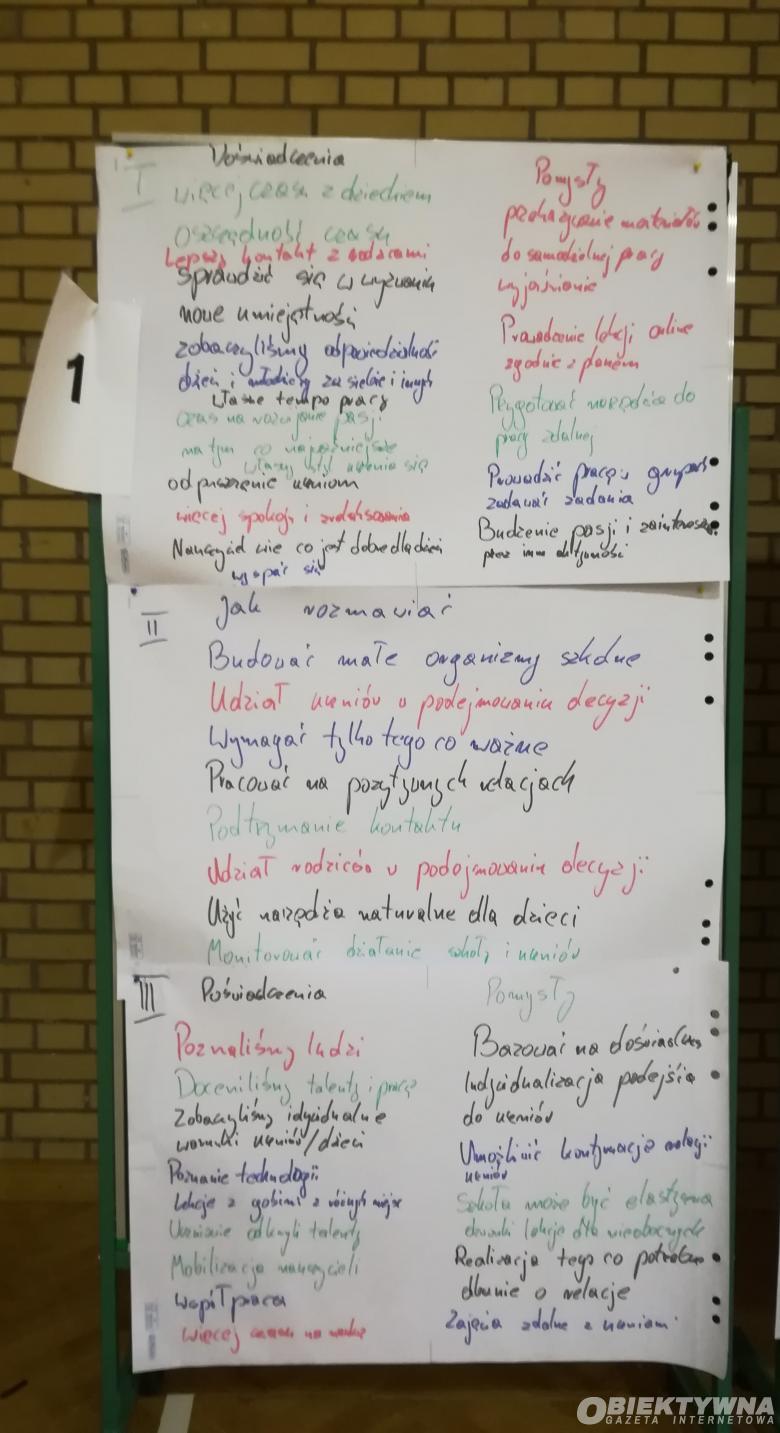 1
I
Doświadczenia
więcej czasu z dzieckiem
oszczędność czasu
Lepszy kontakt z rodzicami
Sprawdzić się w wyzwaniu
nowe umiejętności
zobaczyliśmy odpowiedzialność
dzieci i młodzieży za siebie i innych
Własne tempo pracy
czas na rozwijanie pasji
na tym co najważniejsze
własny styl uczenia się
odpuszczenie uczniom
więcej spokoju i zrelaksowania
Nauczyciel wie co jest dobre dla dzieci
wyspać się
Pomysły
przekazywanie materiałów
do samodzielnej pracy
wyjaśnianie
Prowadzenie lekcji online
zgodnie z planem
Przygotować narzędzia do
pracy zdalnej
Prowadzić pracę w grupach
zadawać zadania
Budzenie pasji i zainteresow.
przez inne aktywności
II
Jak rozmawiać
Budować małe organizmy szkolne
Udział uczniów w podejmowaniu decyzji
Wymagać tylko tego co ważne
Pracować na pozytywnych relacjach
Podtrzymanie kontaktu
Udział rodziców w podejmowaniu decyzji
Użyć narzędzia naturalne dla dzieci
Monitorować działanie szkoły i uczniów
III
Doświadczenia
Poznaliśmy ludzi
Doceniliśmy talenty i pracę
Zobaczyliśmy idywidualne
warunki uczniów/dzieci
Poznanie technologii
Lekcje z gośćmi z różnych miejsc
Uczniowie odkryli talenty
Mobilizacja nauczycieli
Współpraca
więcej czasu na naukę
Pomysły
Bazować na doświadcz
Indywidualizacja podejścia
do uczniów
Umożliwić kontynuację relacji
uczniów
Szkoła może być elastyczna
lekcje dla nieobecnych
Realizacja tego co potrzebne
dbanie o relacje
Zajęcia zdalne z uczniami
OBIEKTYWNA
GAZETA INTERNETOWA